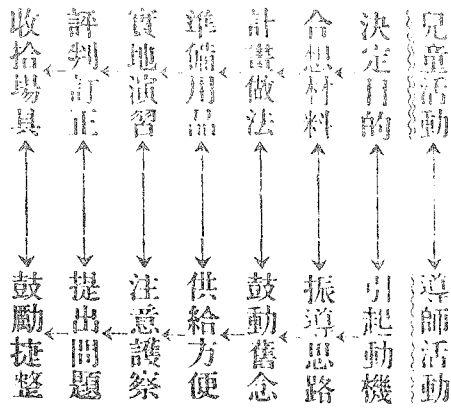 兒童活動
決定目的
合想材料
計畫做法
準備用品
實地演習
評判訂正
收拾場具
導師活動
引起動機
振導思路
鼓動舊念
供給方便
注意護察
提出問題
鼓勵捷整